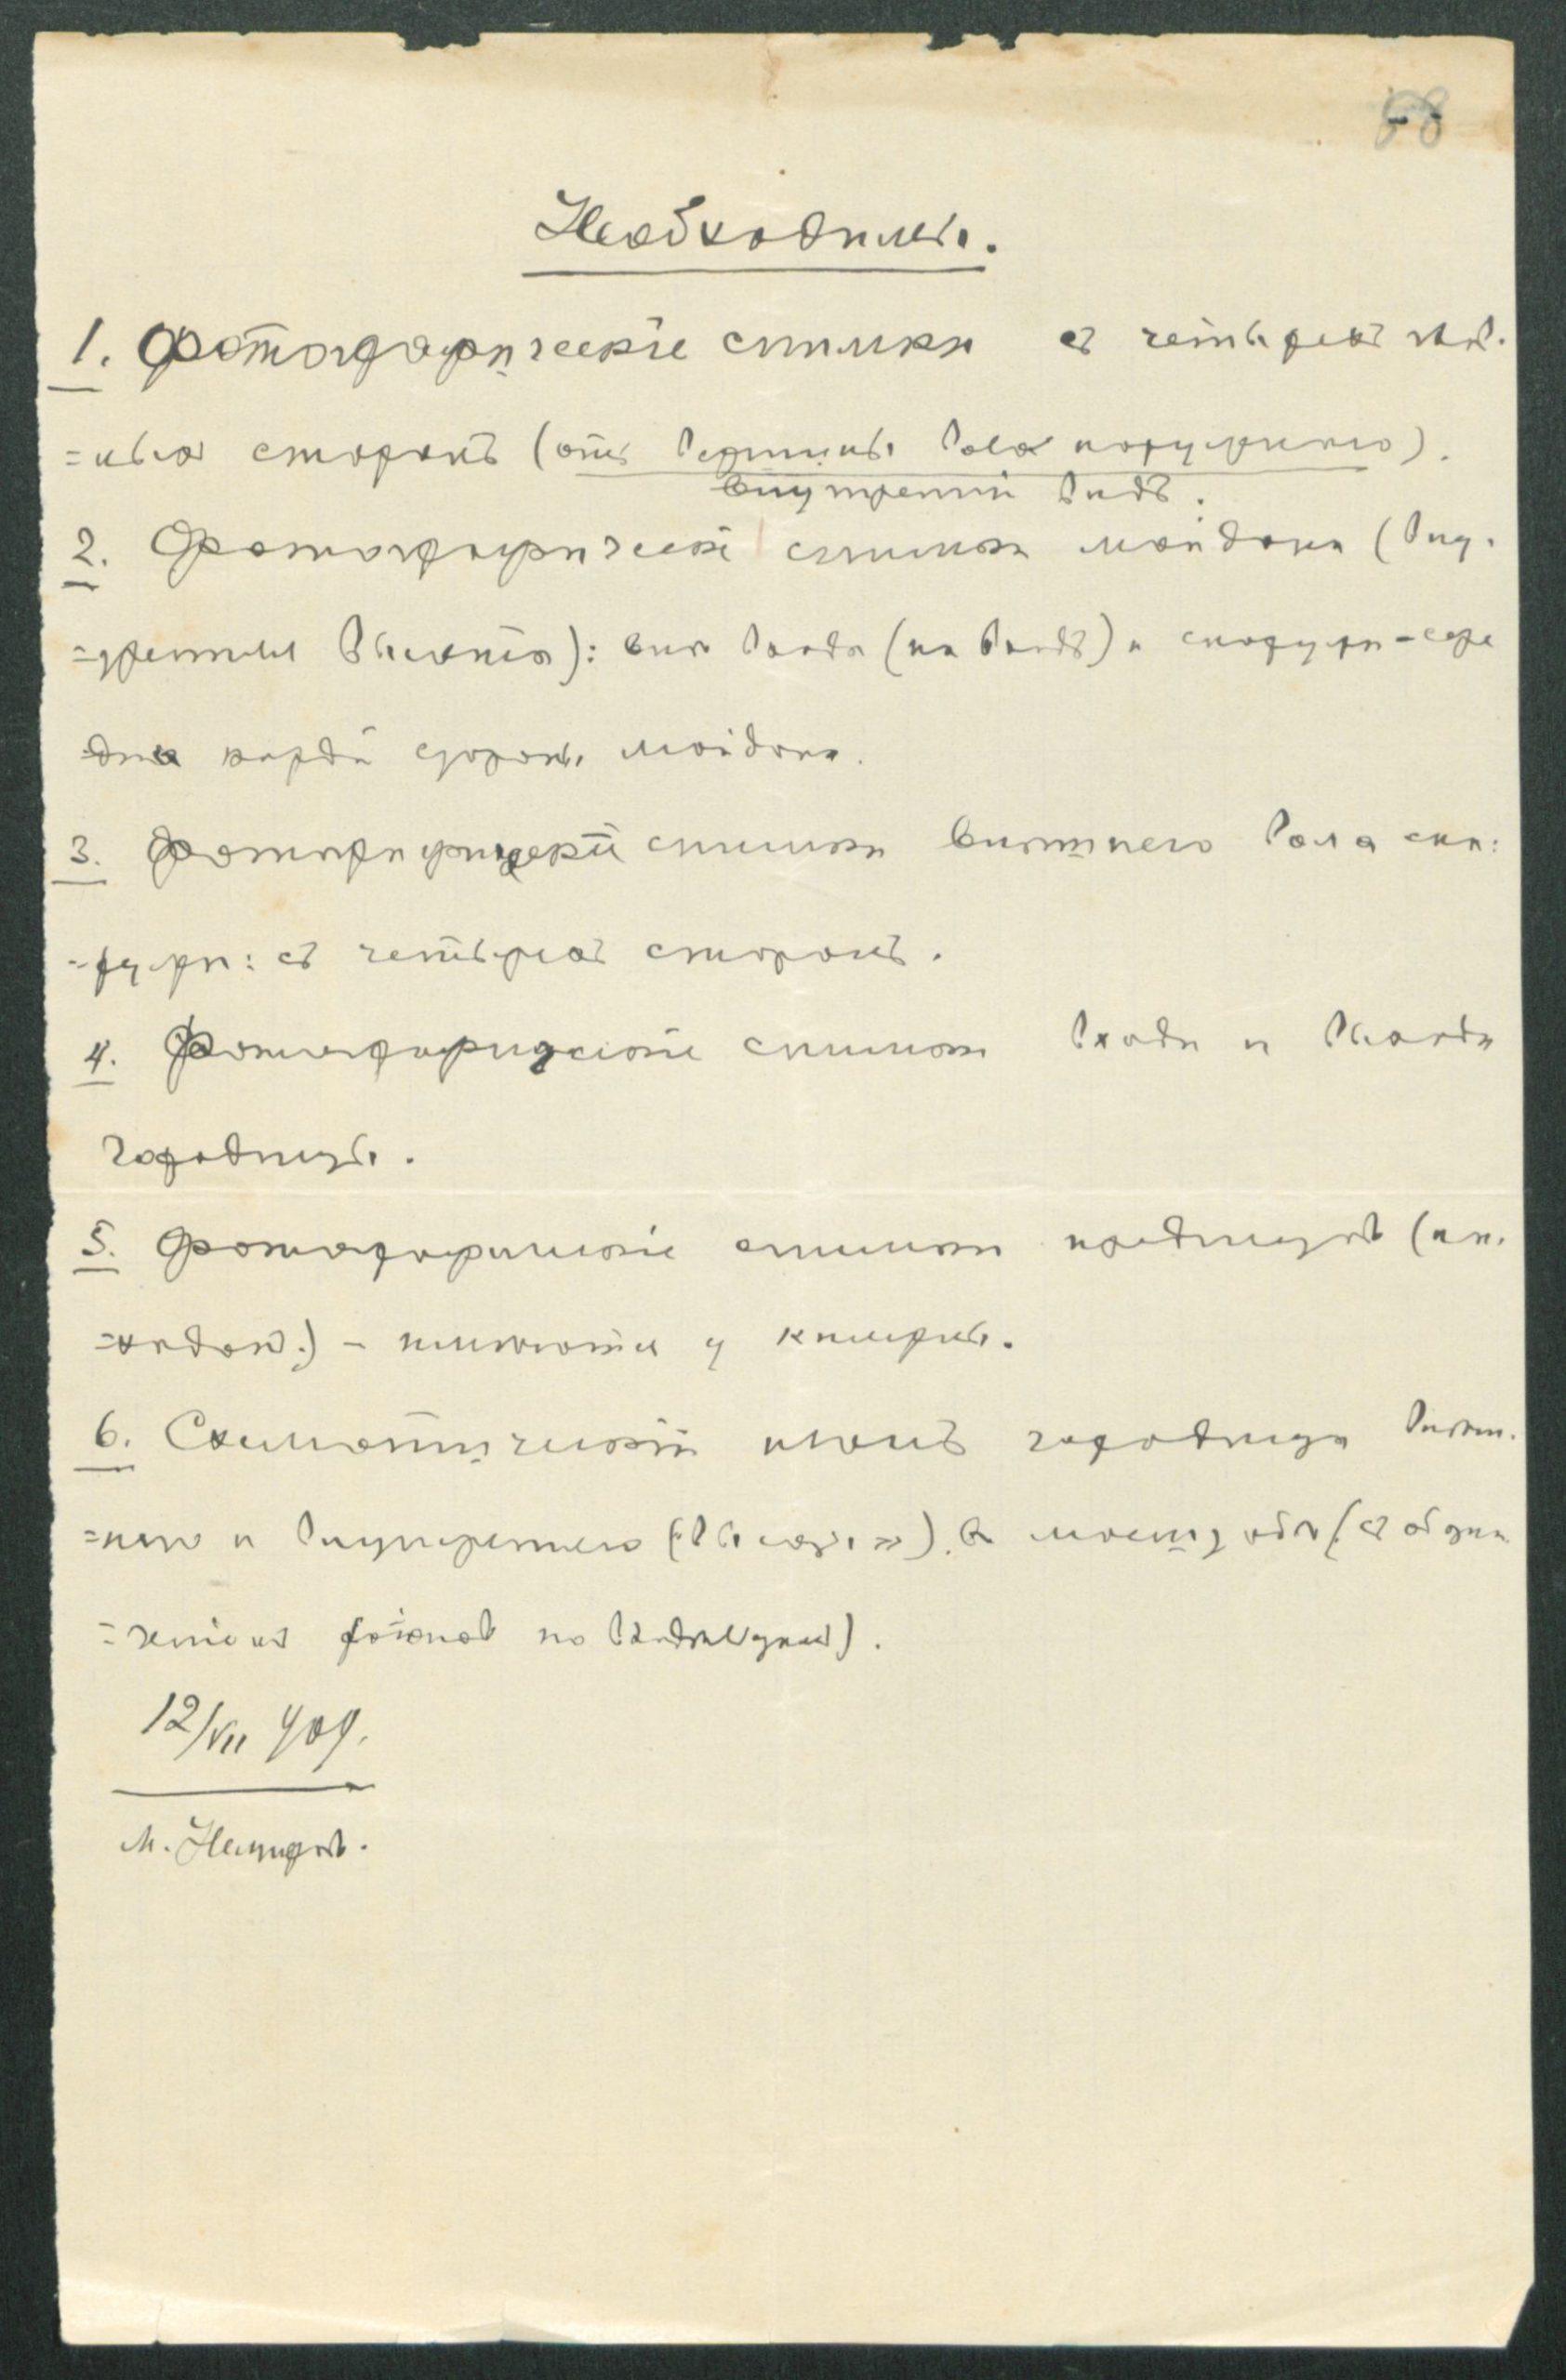 58
Необходимы.
1. Фотографическіе снимки съ четырехъ глав-
=ныхъ сторонъ (отъ вершины вала наружнаго).
внутренній видъ.
2. Фотографическіе снимки майдана (вну-
=тренняя высота): внизъ входа (на входъ) и снаружи - сере
дина каждой стороны майдана.
3. Фотографическіе снимки внѣшняго вала сна-
=ружи: съ четырехъ сторонъ.
4. Фотографическіе снимки входа и выхода
городища.
5. Фотографическіе снимки предметовъ (на-
=ходокъ.) - имѣются у
6. Схематическій планъ городища внѣш-
=няго и внутренняго въ масштабѣ (съ обозна
=ченіемъ по
12/VII 909.
М.